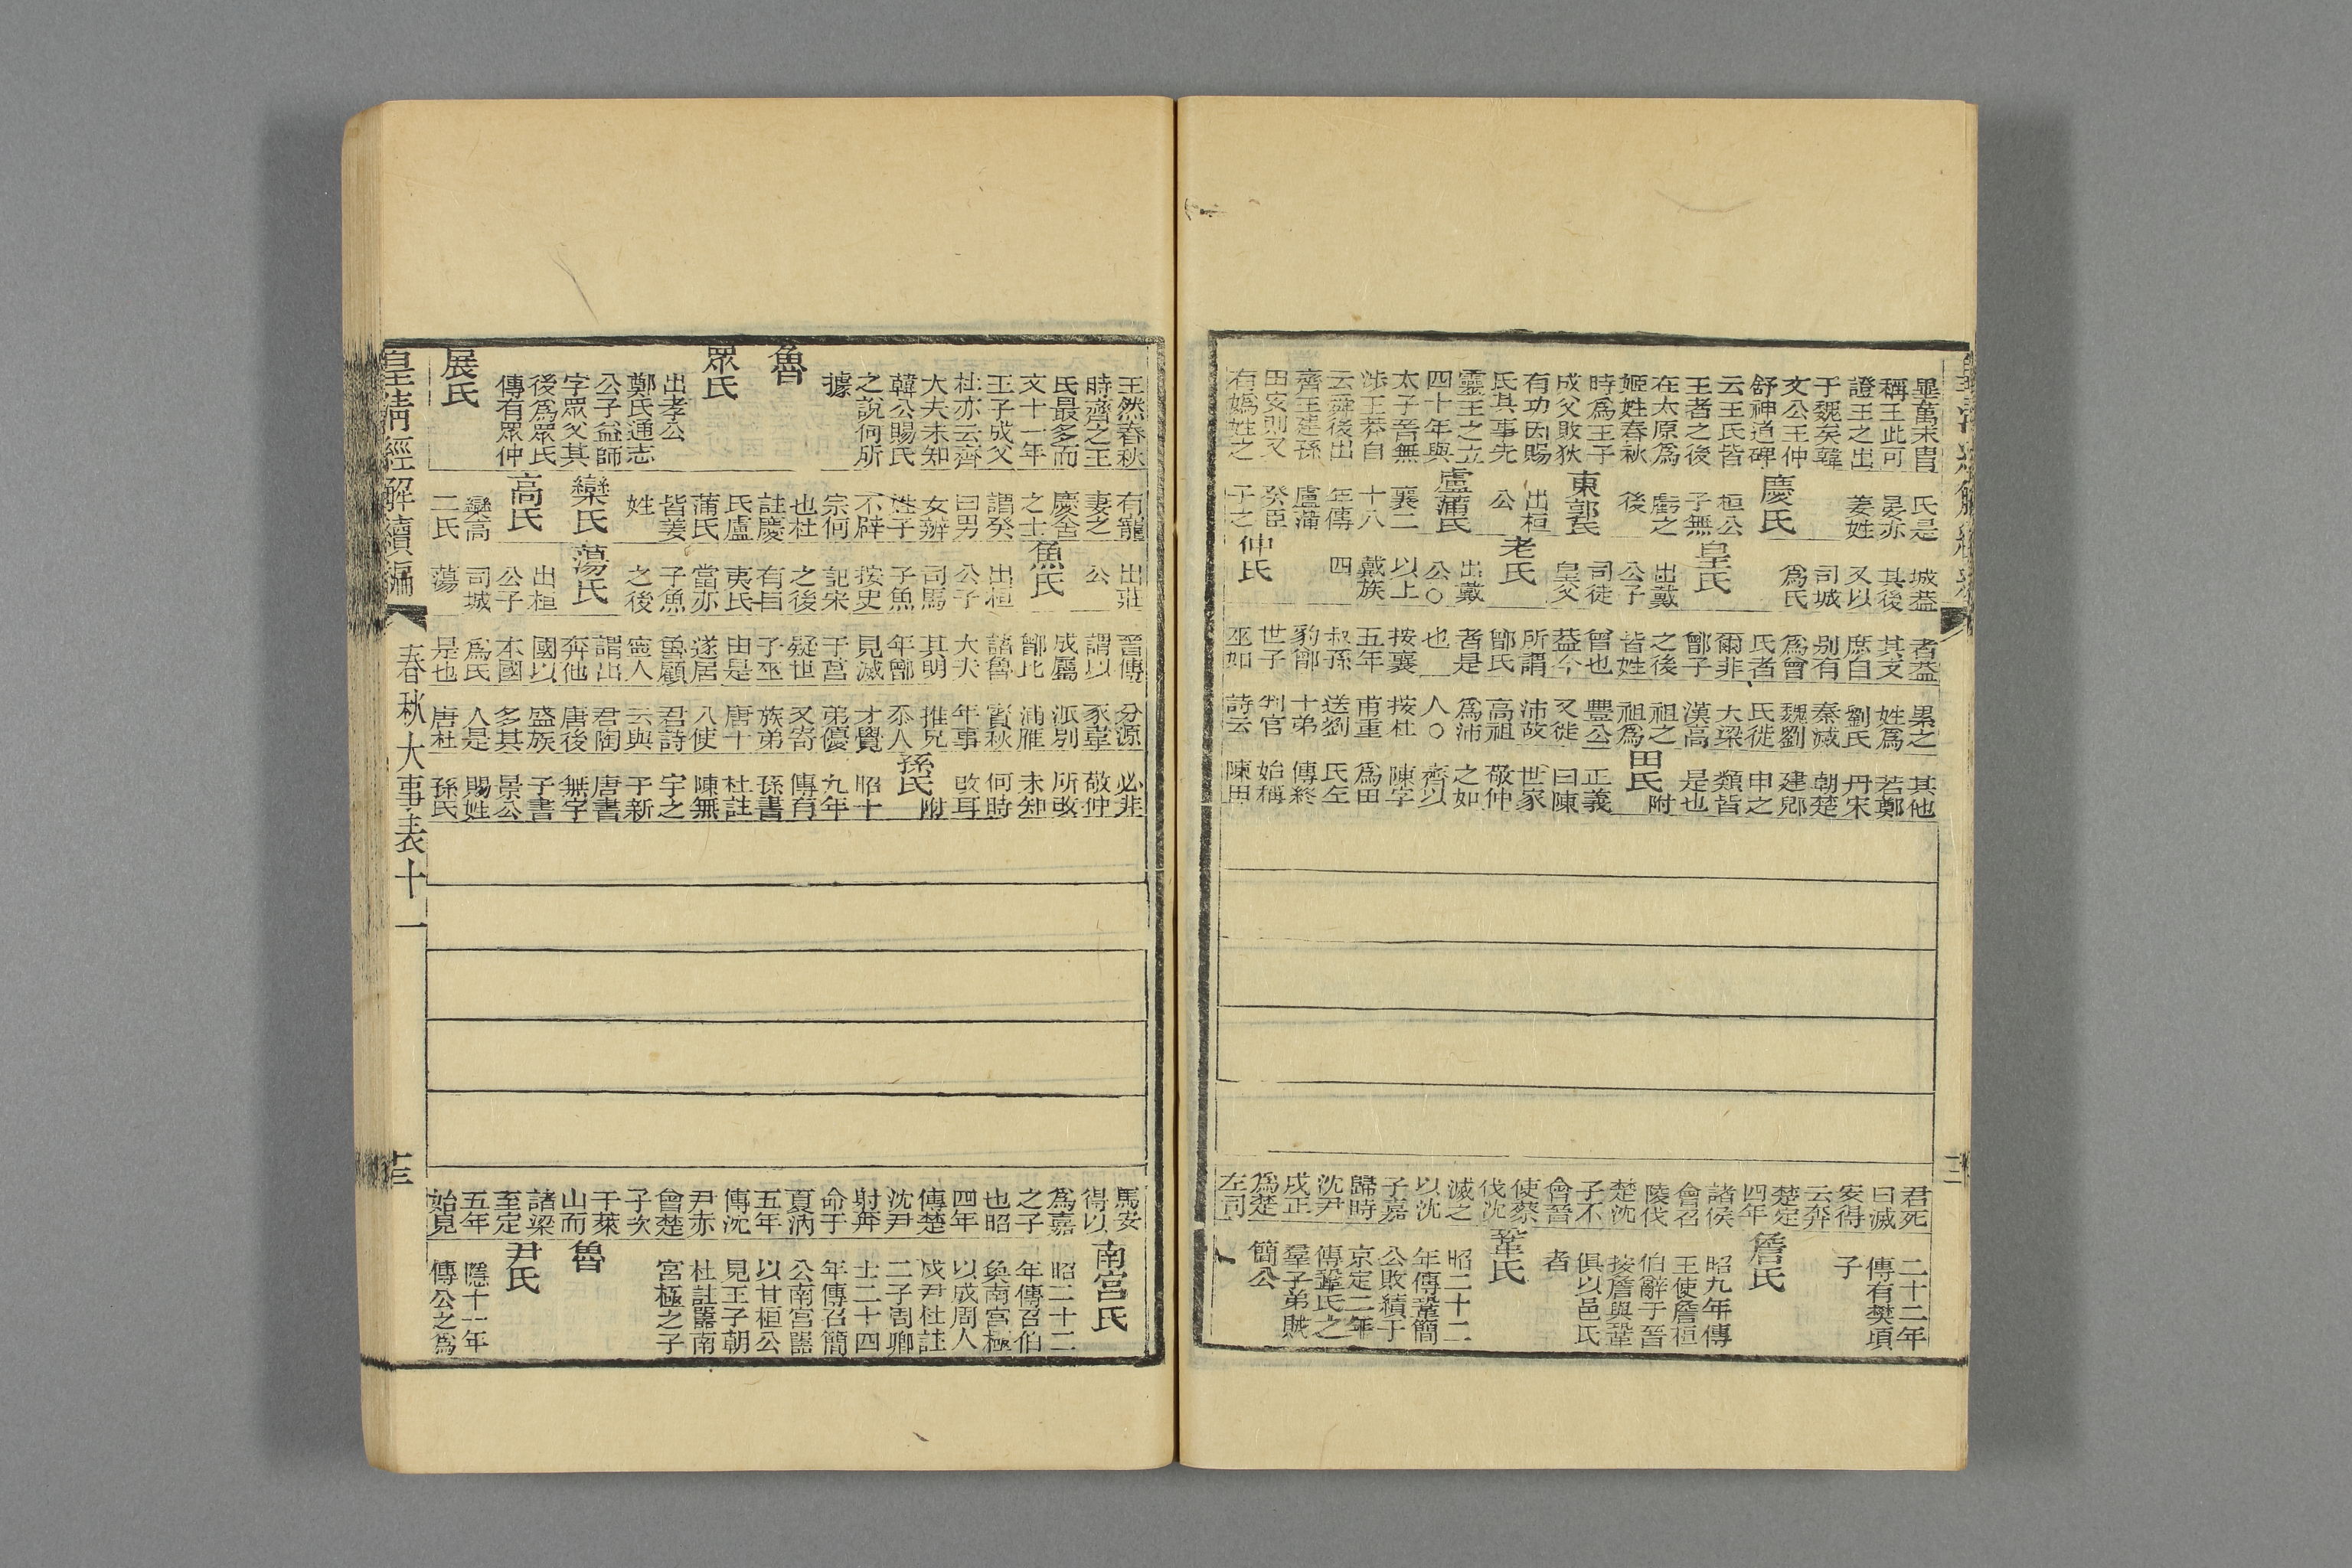 畢萬末冑
稱王此可
證王之出
于魏矣韓
文公王仲
舒神道碑
云王氏皆
王者之後
在太原爲
姬姓春秋
時爲王子
成父敗狄
有功因賜
氏其事先
靈王之立
四十年與
太子晉無
涉王莽自
云舜後出
齊王建孫
田安則又
有嬀姓之
氏是
晏亦
姜姓
慶氏
桓公
子無
虧之
後
東郭氏
出桓
公
盧蒲氏
襄二
十八
年傳
盧蒲
癸臣
子之
城葢
其後
又以
司城
爲氏
皇氏
出戴
公子
司徒
皇父
老氏
出戴
公○
以上
戴族
四
仲氏
者葢
其支
庶自
别有
爲曾
氏者
爾非
鄫子
之後
皆姓
曾也
葢今
所謂
鄫氏
者是
也
按襄
五年
叔孫
豹鄫
世子
巫如
累之
姓爲
劉氏
秦滅
魏劉
氏徙
大梁
漢高
祖之
祖爲
豐公
又徙
沛故
高祖
爲沛
人○
按杜
甫重
送劉
十弟
判官
詩云
其他
若鄭
丹宋
朝楚
建
申之
類皆
是也
田氏附
正義
曰陳
世家
敬仲
之如
齊以
陳字
爲田
氏左
傳終
始稱
陳田
君死
曰滅
安得
云奔
楚定
四年
諸侯
會召
陵伐
楚沈
子不
會晉
使蔡
伐沈
滅之
以沈
子嘉
歸時
沈尹
戌正
爲楚
左司
二十二年
傳有樊項
子
詹氏
昭九年傳
王使詹桓
伯辭于晉
按詹與鞏
俱以邑氏
者
鞏氏
昭二十二
年傳鞏簡
公敗績于
京定二年
傳鞏氏之
羣子弟賊
簡公
王然春秋
時齊之王
氏最多而
文十一年
王子成父
杜亦云齊
大夫未知
韓公賜氏
之說何所
據
魯
眾氏
出孝公
鄭氏通志
公子益師
字眾父其
後爲眾氏
傳有眾仲
展氏
有寵
妻之
慶舍
之士
謂癸
曰男
女辨
姓子
不辟
宗何
也杜
註慶
氏盧
蒲氏
皆姜
姓
欒氏
高氏
欒高
二氏
出莊
公
魚氏
出桓
公子
司馬
子魚
按史
記宋
之後
有目
夷氏
當亦
子魚
之後
蕩氏
出桓
公子
司城
蕩
晉傳
謂以
成屬
鄫比
諸魯
大夫
其明
年鄫
見滅
于莒
疑世
子巫
由是
遂居
魯顧
寧人
謂出
奔他
國以
本國
爲氏
是也
分源
豕韋
派別
浦雁
賓秋
年事
推兄
忝人
才覺
弟優
又寄
族弟
唐十
八使
君詩
云與
君陶
唐後
盛族
多其
人是
唐杜
必非
敬仲
所改
未知
何時
改耳
孫氏附
昭十
九年
傳有
孫書
杜註
陳無
宇之
子新
唐書
無宇
子書
景公
賜姓
孫氏
馬安
得以
爲嘉
之子
也昭
四年
傳楚
沈尹
射奔
命于
夏汭
五年
傳沈
尹赤
會楚
子次
于萊
山而
諸梁
至定
五年
始見
南宮氏
昭二十二
年傳召伯
奐南宮極
以成周人
戍尹杜註
二子周卿
士二十四
年傳召簡
公南宮嚚
以甘桓公
見王子朝
杜註嚚南
宮極之子
魯
尹氏
隱十一年
傳公之爲
皇清經解續編
春秋大事表十一
十三